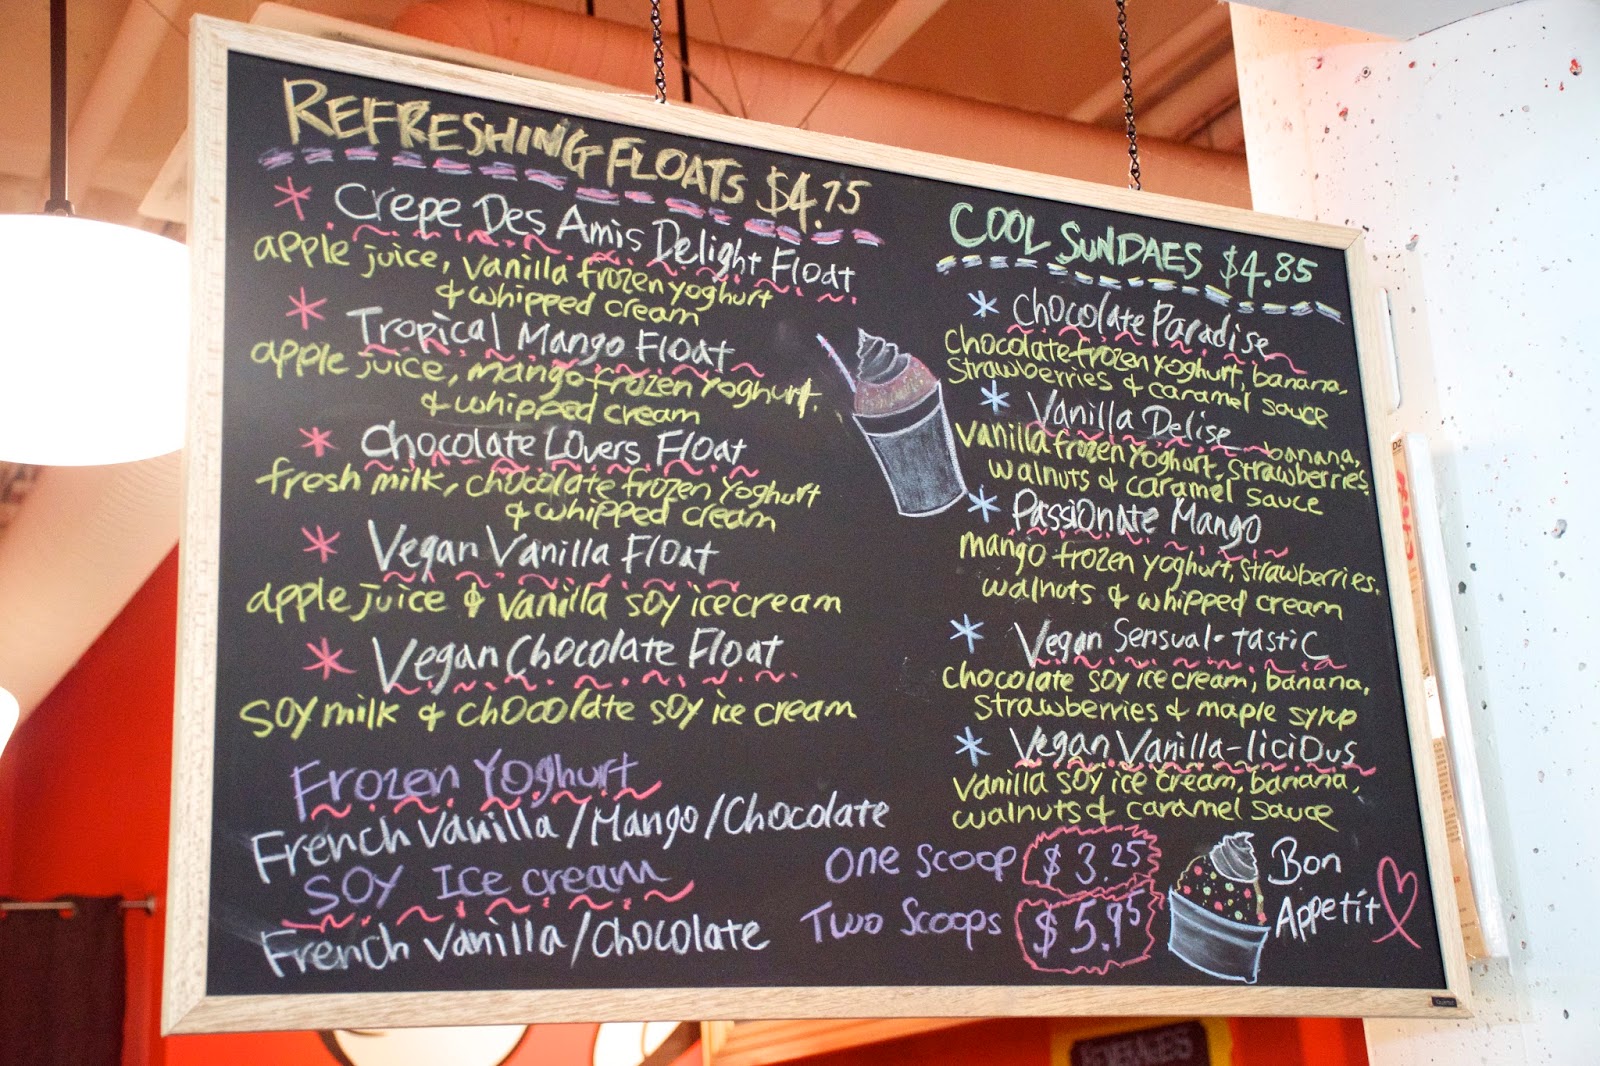 REFRESHING FLOATS $4.75
* Crepe Des Amis Delight Float
apple juice, vanilla frozen yoghurt
& whipped cream
* Tropical Mango Float
apple juice, mango frozen yoghurt.
& whipped cream
* Chocolate Lovers Float
fresh milk, chocolate frozen yoghurt
& whipped cream
* Vegan Vanilla Float
apple juice & vanilla soy icecream
* Vegan Chocolate Float
soy milk & chocolate soy ice cream
Frozen Yoghurt
French Vanilla/Mango/Chocolate
SOY Ice cream
French Vanilla/Chocolate
COOL SUNDAES $4.85
* Chocolate Paradise
Chocolate frozen yoghurt, banana,
strawberries & caramel sauce
* Vanilla Delise
banana,
vanilla frozen yoghurt, strawberries,
walnuts & caramel sauce
* Passionate Mango
mango frozen yoghurt, strawberries.
walnuts & whipped cream
* Vegan Sensual-tastic
chocolate soy ice cream, banana,
strawberries & maple syrup
* Vegan Vanilla-licious
vanilla soy ice cream, banana,
walnuts & caramel sauce
One scoop $3.25
Two Scoops $5.95
Bon
Appetit
BEVERAGES